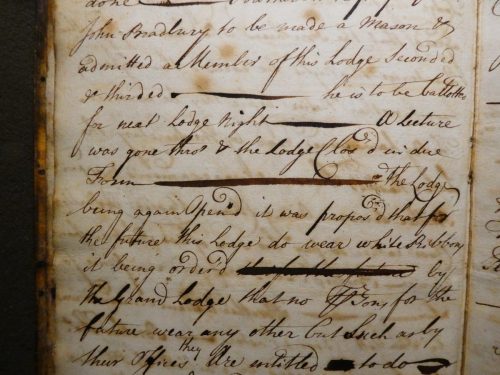 done
John Bradbury to be made a Mason &
admitted a Member of this Lodge Seconded
& thirded — he is to be balloted
for next Lodge Night — A Lecture
was gone thro' & the Lodge Clos'd in due
Form — The Lodge
being again Open'd it was propos'd that for
the future this Lodge do wear white Ribbons
it being order'd by
the Grand Lodge that no for the
future wear any other but Such as by
their Offices they Are intitled to do